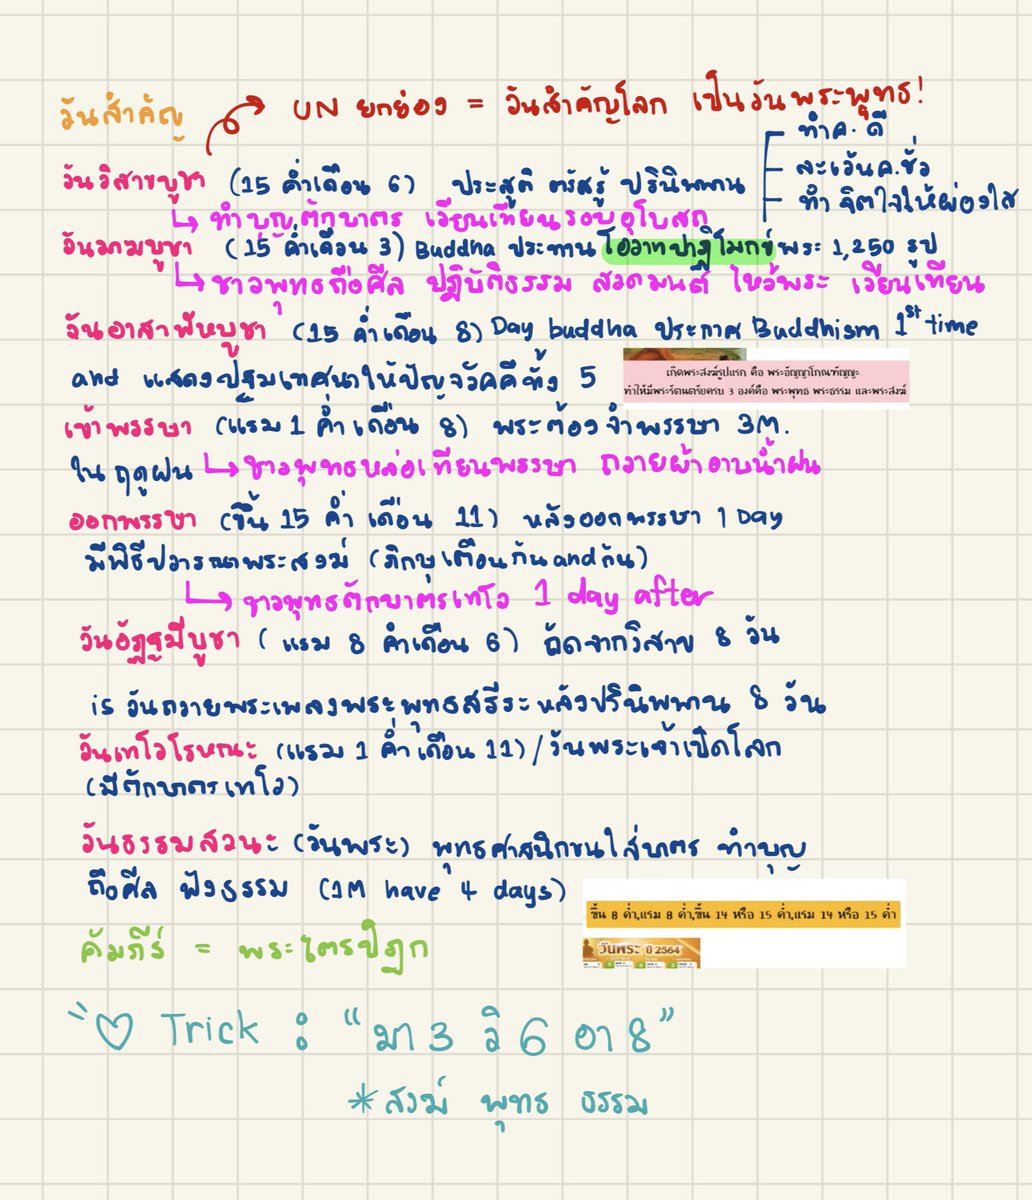 วันสำคัญ
UN ยกย่อง = วันสำคัญโลก เป็นวันพระพุทธ!
วันวิสาขบูชา (15 ค่ำเดือน 6) ประสูติ ตรัสรู้ ปรินิพพาน
ทำค. ดี
ละเว้นค.ชั่ว
ทำจิตใจให้ผ่องใส
ทำบุญตักบาตร เวียนเทียนรอบอุโบสถ
วันมาฆบูชา (15 ค่ำเดือน 3) Buddha ประทานโอวาทปาฏิโมกข์พระ 1,250 รูป
ชาวพุทธถือศีล ปฏิบัติธรรม สวดมนต์ ไหว้พระ เวียนเทียน
วันอาสาฬหบูชา (15 ค่ำเดือน 8) Day buddha ประกาศ Buddhism 1st time
and แสดงปฐมเทศนาให้ปัญจวัคคีทั้ง 5
เกิดพระสงฆ์รูปแรก คือ พระอัญญาโกณฑัญญะ
ทำให้มีพระรัตนตรัยครบ 3 องค์คือ พระพุทธ พระธรรม และพระสงฆ์
เข้าพรรษา (แรม 1 ค่ำเดือน 8) พระต้องจำพรรษา 3M.
ในฤดูฝน
ชาวพุทธหล่อเทียนพรรษา ถวายผ้าอาบน้ำฝน
ออกพรรษา (ขึ้น 15 ค่ำ เดือน 11) หลังออกพรรษา 1 Day
มีพิธีปวารณาพระสงฆ์ (ภิกษุเตือนกันandกัน)
ชาวพุทธตักบาตรเทโว 1 day after
วันอัฏฐมีบูชา (แรม 8 ค่ำเดือน 6) ถัดจากวิสาข 8 วัน
is วันถวายพระเพลงพระพุทธสรีระหลังปรินิพพาน 8 วัน
วันเทโวโรหณะ (แรม 1 ค่ำเดือน 11) / วันพระเจ้าเปิดโลก
(มีตักบาตรเทโว)
วันธรรมสวนะ (วันพระ) พุทธศาสนิกชนใส่บาตร ทำบุญ
ถือศีล ฟังธรรม (1M have 4 days)
ขึ้น 8 ค่ำ,แรม 8 ค่ำ,ขึ้น 14 หรือ 15 ค่ำ,แรม 14 หรือ 15 ค่ำ
วันพระ ปี 2564
คัมภีร์ = พระไตรปิฎก
Trick : "มา 3 วิ 6 อา 8"
*สงฆ์ พุทธ ธรรม